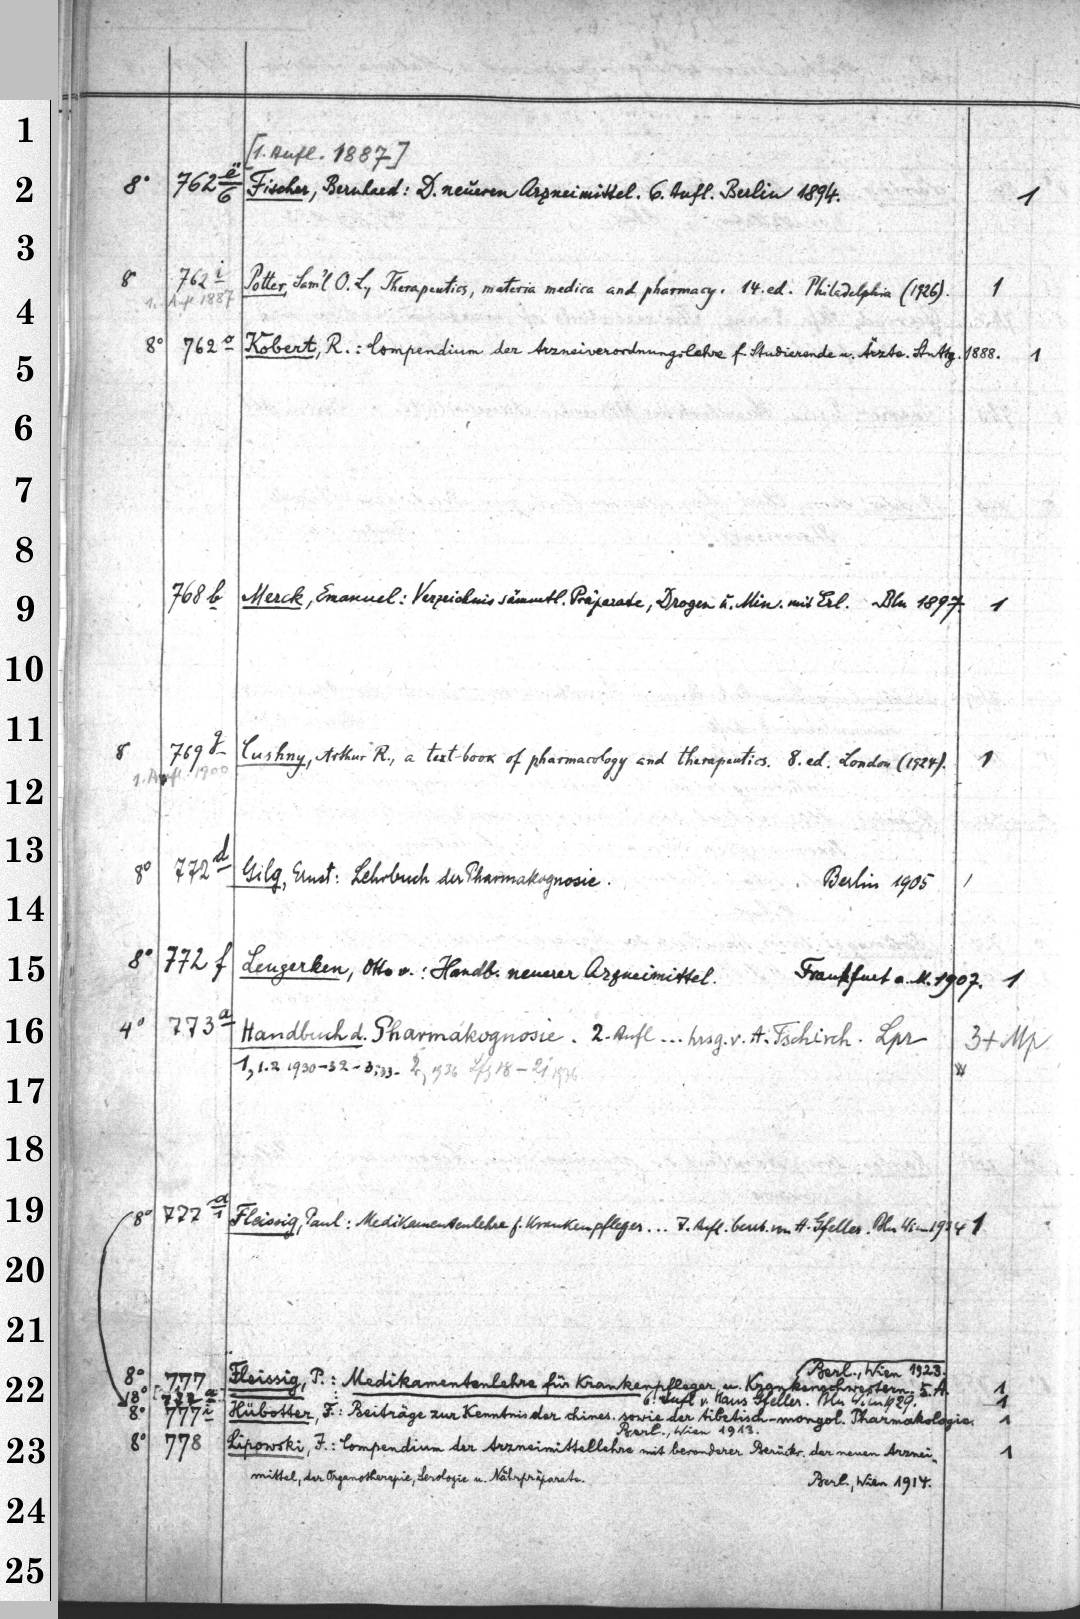 1
[1. Aufl. 1887]
2 8° 762 e/6 Fischer, Bernhard: D. neueren Arzneimittel. 6. Aufl. Berlin 1894. 1
3
8° 762 i Potter, Sam'l O. L., Therapeutics, materia medica and pharmacy. 14. ed. Philadelphia (1926). 1
4 1. Aufl 1887
5 8° 762 o Kobert, R.: Compendium der Arzneiverordnungslehre f. Studierende u. Ärzte. Stuttg. 1888. 1
6
7
8
9 768 b Merck, Emanuel: Verzeichnis sämmtl. Präparate, Drogen u. Min. mit Erl. Bln 1897 1
10
11
8 769 g Cushny, Arthur R., a text-book of pharmacology and therapeutics. 8. ed. London (1924). 1
12 1. Aufl. 1900
13
8° 772 d Gilg, Ernst: Lehrbuch der Pharmakognosie. Berlin 1905 1
14
15 8° 772 f Lengerken, Otto v.: Handb. neuerer Arzneimittel. Frankfurt a. M. 1907. 1
16 4° 773 a Handbuch d. Pharmakognosie. 2. Aufl ... hrsg. v. A. Tschirch. Lpz 3+
1, 1.2 1930-32 - 3,33- 2, 1936 Lfg 18 - 21 1936
17
18
19 8° 777 a/1 Fleissig, Paul: Medikamentenlehre f. Krankenpfleger ... 7. Aufl. bearb. von H. Gfeller. Bln Wien 1934 1
20
21
8° 777 Fleissig, P.: Medikamentenlehre für Krankenpfleger u. Krankenschwestern. 5. A. Berl., Wien 1923. 1
22 8° 777 a 6. Aufl v. Hans Gfeller. Bln Wien 1929. 1
777 i Hübotter, F.: Beiträge zur Kenntnis der chines. sowie der tibetisch-mongol. Pharmakologie. 1
Berl., Wien 1913.
23 8° 778 Lipowski, J.: Compendium der Arzneimittellehre mit besonderer Berücks. der neuen Arznei- 1
mittel, der Organotherapie, Serologie u. Nährpräparate. Berl., Wien 1914.
24
25